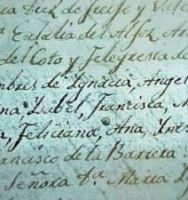 Eulalia del Alfoz
del Coto y Felegresia de
mbres de Ignacia, Angel
na, Isabel, Francisca, M
a, Feliciana, Ana, Ynes
rancisco de la Barrera
Señora Dª Maria